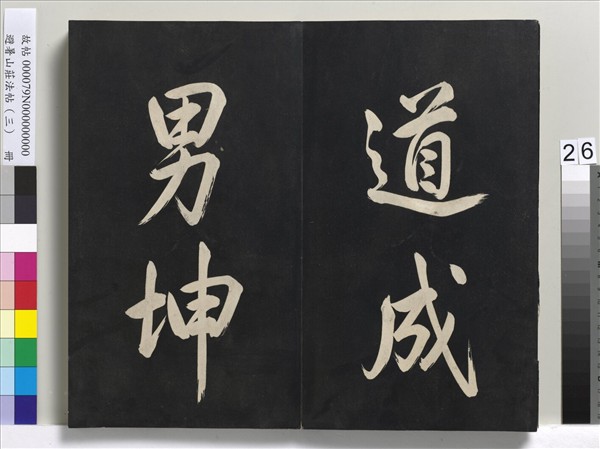 道成
男坤
故帖 000079N000000000
避暑山莊法帖（三） 冊
26